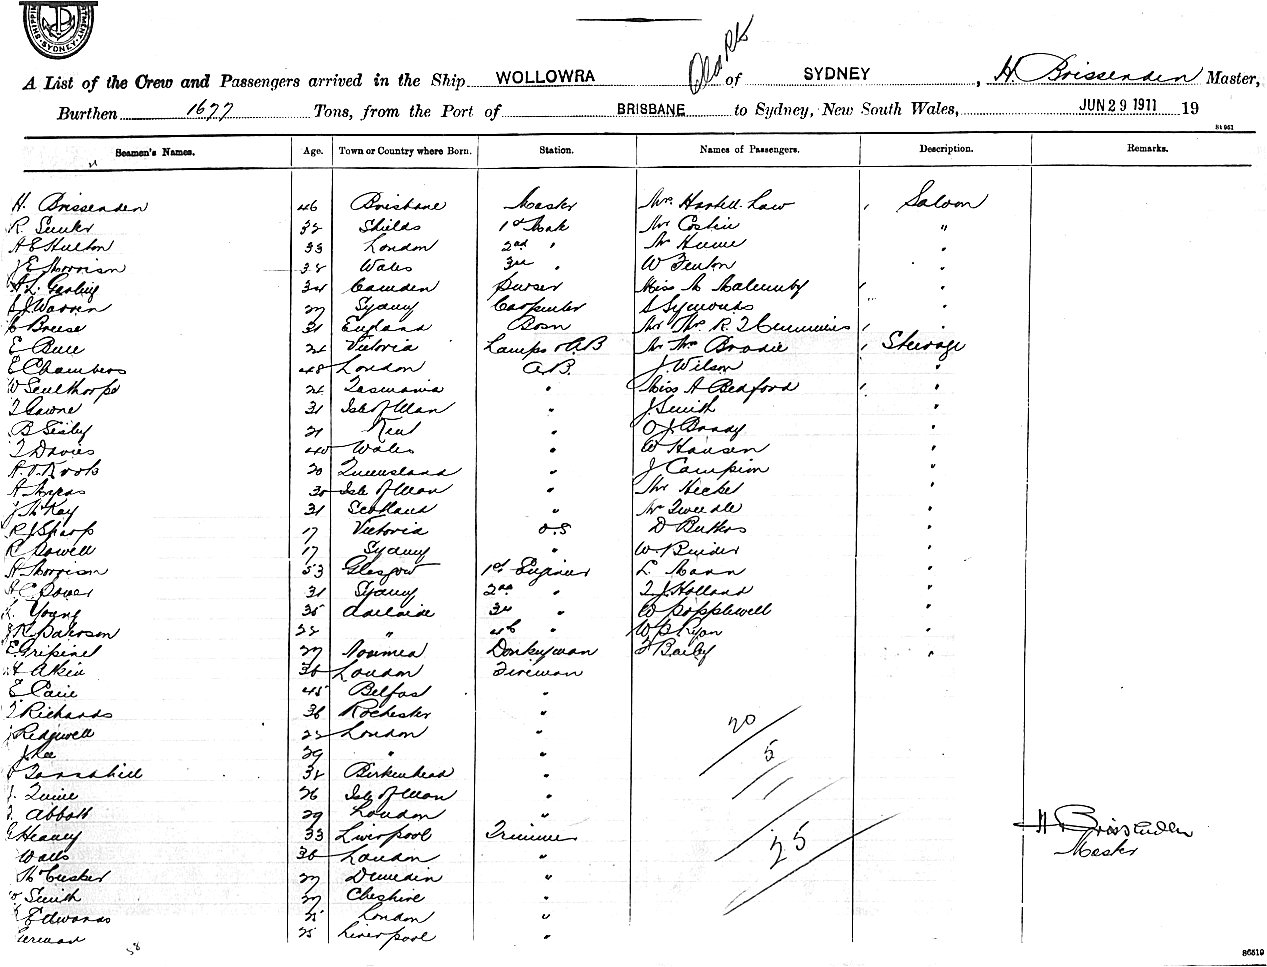 SYDNEY
A List of the Crew and Passengers arrived in the Ship WOLLOWRA of SYDNEY, H. Brissenden Master,
Burthen 1677 Tons, from the Port of BRISBANE to Sydney, New South Wales, JUN 29 1911 19
84961
Seamen's Names. Age. Town or Country where Born. Station. Names of Passengers. Description. Remarks.
H. Brissenden 46 Brisbane Master Mrs Law Saloon
R. 32 Shields 1st Mate Mr Costin "
A E Hulton 33 London 2nd " Mr Hume "
J E Morrison Wales 3rd " W Fenton "
A L Camden Purser Miss M "
J Warren 27 Sydney Carpenter S Symonds "
Breese 31 England Bosn Mr Mrs R J Cummins "
E 24 Victoria Lamps & AB Mr Mrs Brodie Steerage
E Chambers 48 London A.B. J. Wilson "
W Sculthorpe 24 Tasmania " Miss A Bedford "
31 Isle of Man " J Smith "
B 21 Kew " O J "
T Davies 40 Wales " W Hansen "
20 Queensland " J Campion "
A 30 Isle of Man " Mr "
J McKay 31 Scotland " Mr Tweedle "
R J Sharp 17 Victoria O.S D "
R 17 Sydney " W "
A Morrison 53 Glasgow 1st Engineer L. Mann "
A C Power 31 Sydney 2nd " T J Holland "
Young 35 Adelaide 3rd " W Popplewell "
J R Paterson " 4th " W P Ryan "
E. 27 Noumea Donkeyman F Bailey "
Akin 36 London Fireman
E 45 Belfast "
T Richards 36 Rochester "
Ridgwell London " 20
J Lee 29 " " 5
Tannahill Birkenhead "
26 Isle of Man "
Abbott 29 London " H Brissenden
Heaney 33 Liverpool Trimmer 25
36 London " Master
McCusker 27 Dunedin "
Smith 27 Cheshire "
Edwards London "
25 Liverpool "
58
86519